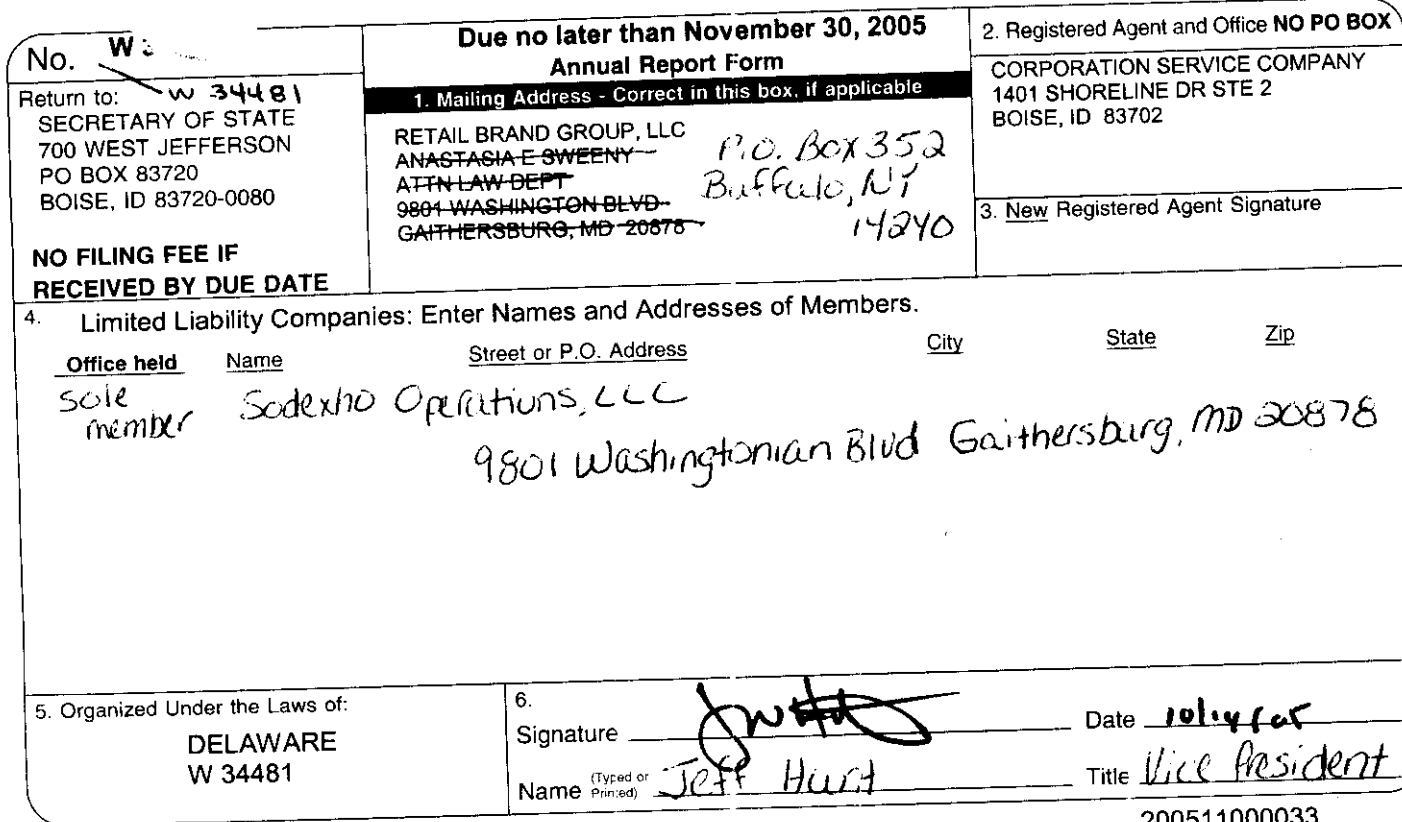 No. W
W 34481
Return to:
SECRETARY OF STATE
700 WEST JEFFERSON
PO BOX 83720
BOISE, ID 83720-0080
NO FILING FEE IF
RECEIVED BY DUE DATE
Due no later than November 30, 2005
Annual Report Form
1. Mailing Address - Correct in this box, if applicable
RETAIL BRAND GROUP, LLC
ANASTASIA E SWEENY
ATTN LAW DEPT
9801 WASHINGTON BLVD
GAITHERSBURG, MD 20878
P.O. Box 352
Buffalo, NY
14240
2. Registered Agent and Office NO PO BOX
CORPORATION SERVICE COMPANY
1401 SHORELINE DR STE 2
BOISE, ID 83702
3. New Registered Agent Signature
4. Limited Liability Companies: Enter Names and Addresses of Members.
Office held Name Street or P.O. Address City State Zip
Sole
member
Sodexho Operations, LLC
9801 Washingtonian Blvd Gaithersburg, MD 20878
5. Organized Under the Laws of:
DELAWARE
W 34481
6.
Signature
Date
Name (Typed or Printed) Jeff Hurt
Title Vice President
200511000033